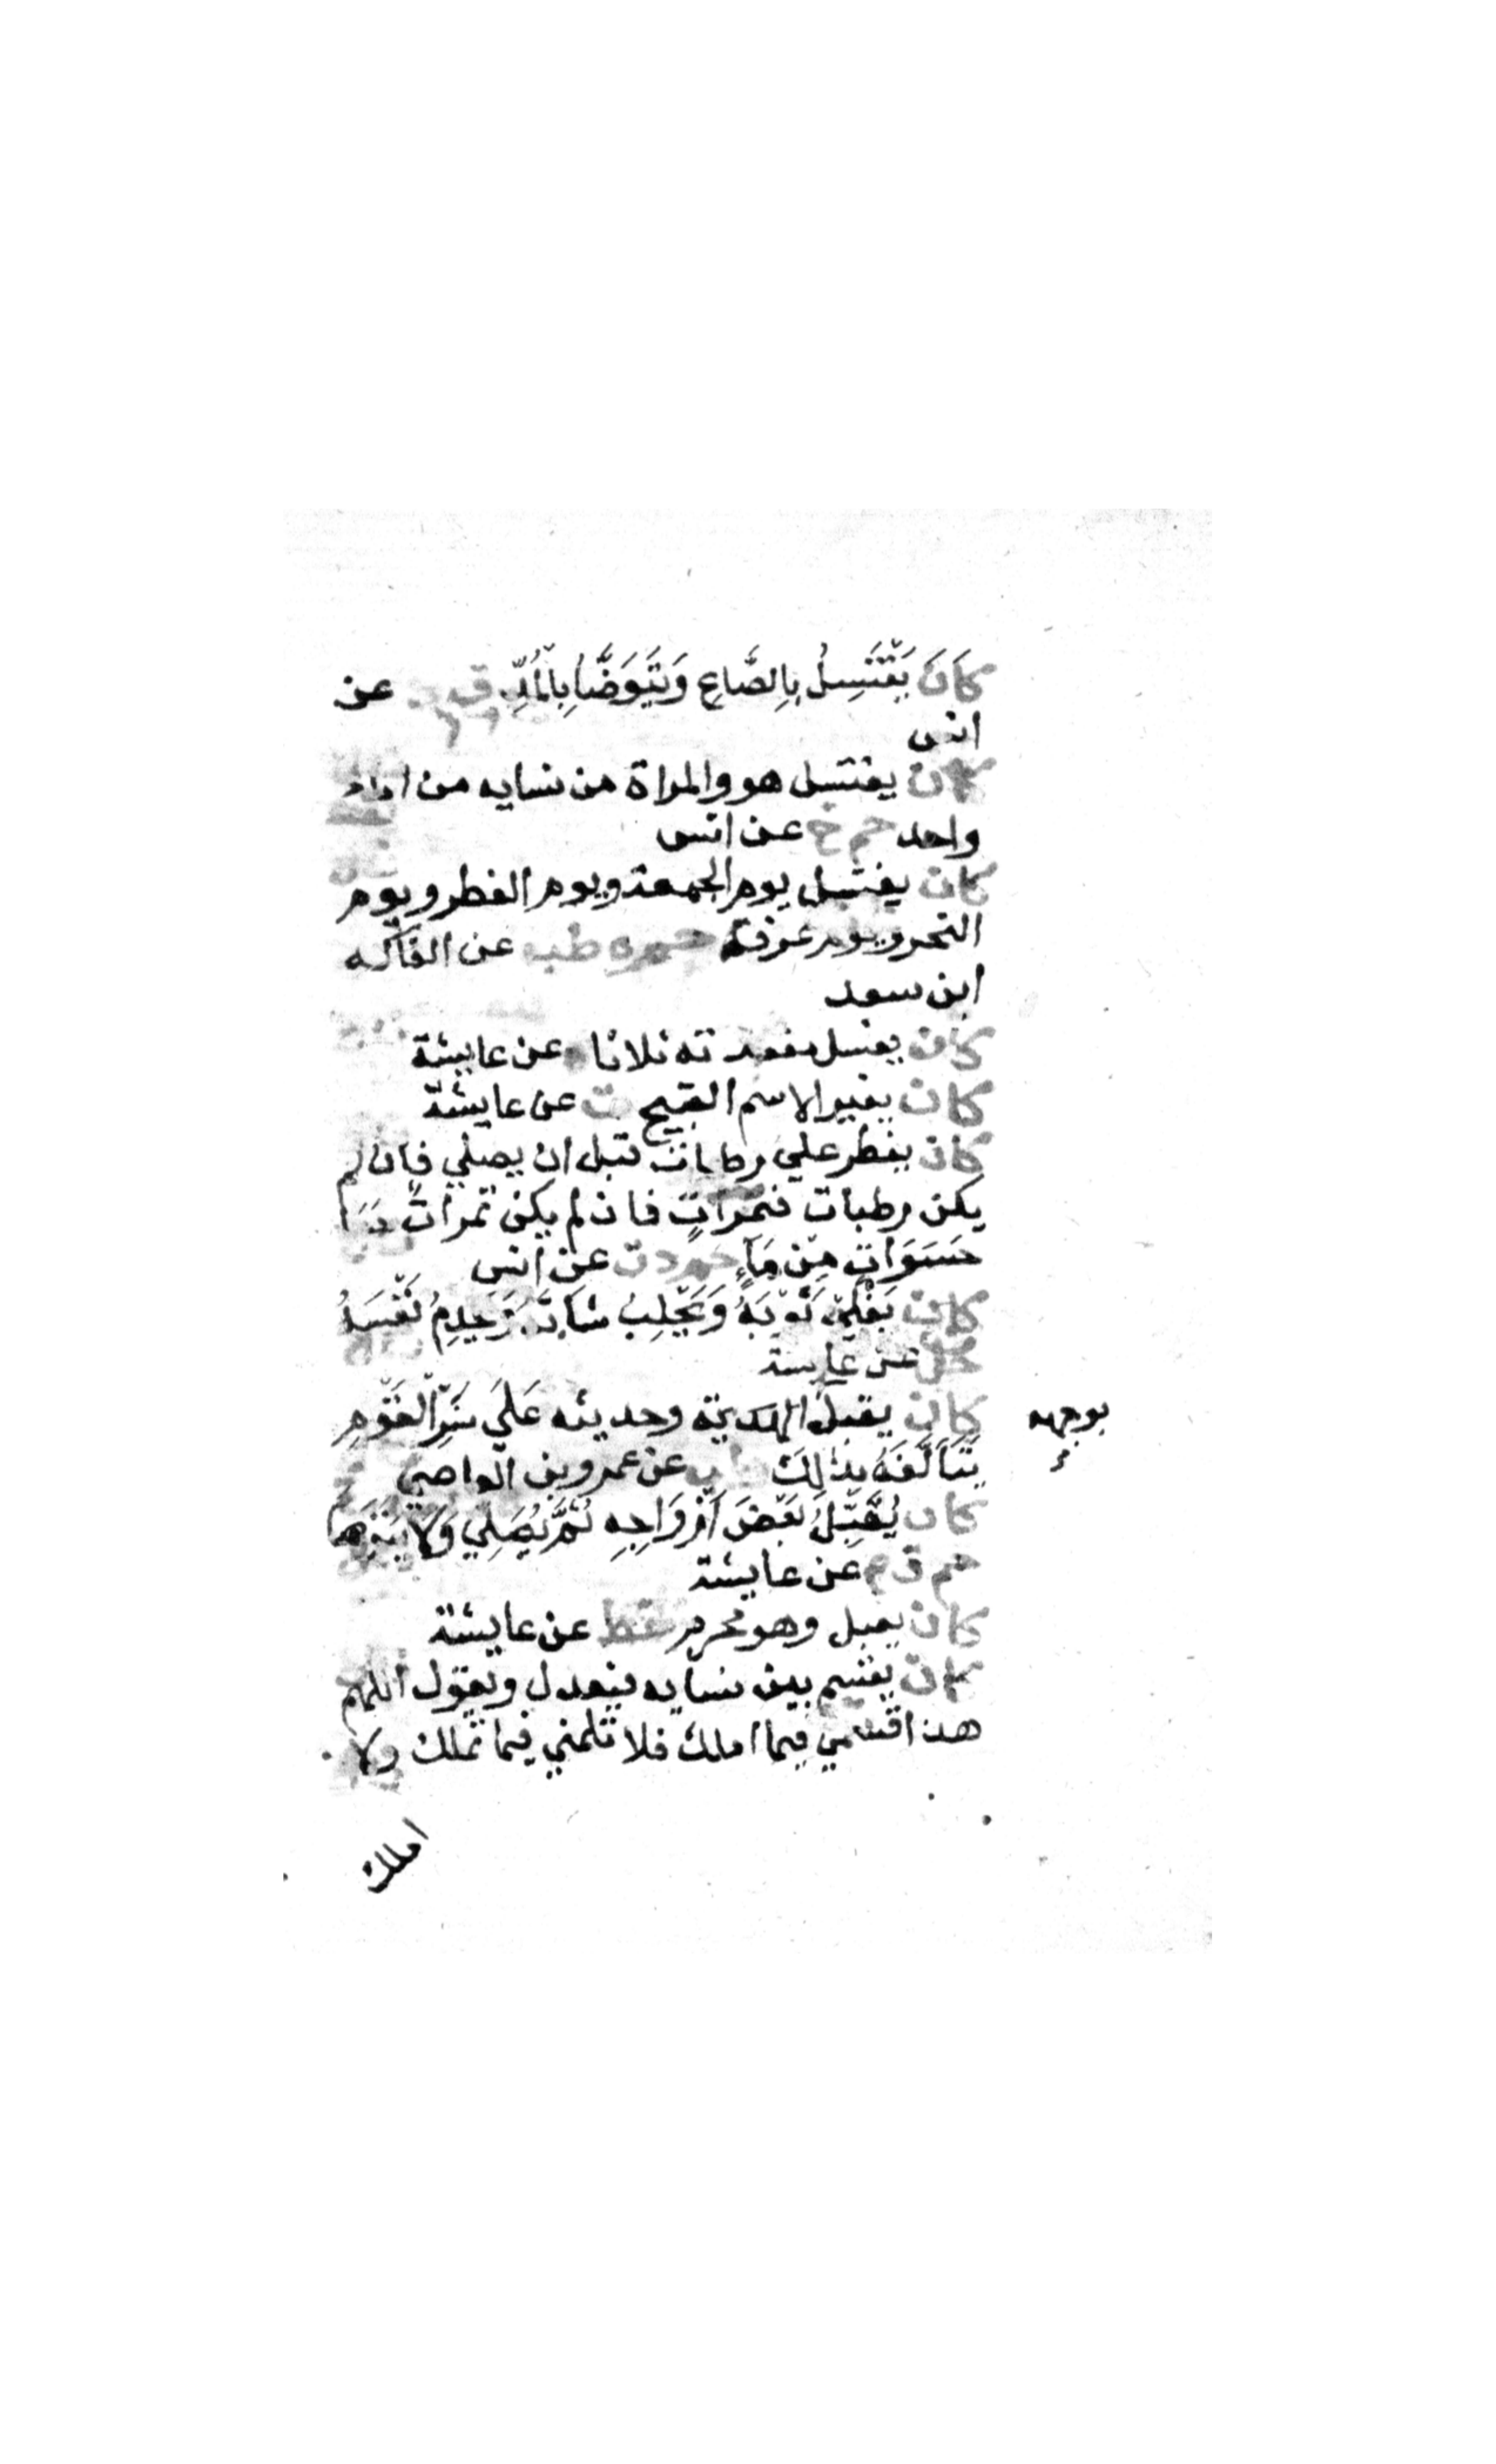 كَانَ يَغْتَسِلُ بِالصَّاعِ وَيَتَوَضَّأُ بِالْمُدِّ ق د عن
انس
كان يغتسل هو والمراة من نسايه من اناء
واحد حم خ عن انس
كان يغتسل يوم الجمعة ويوم الفطر ويوم
النحر ويوم عرفة حم ه طب عن الفاكه
ابن سعد
كان يغسل مقعدته ثلاثا ه عن عايشة
كان يغير الاسم القبيح ت عن عايشة
كان يفطر على رطبات قبل ان يصلي فان لم
يكن رطبات فتمرات فان لم يكن تمرات حسا
حَسَوَاتٍ مِنْ مَاءٍ حم د ت عن انس
كان يَفْلِي ثَوْبَهُ وَيَحْلِبُ شَاتَهُ وَيَخْدِمُ نَفْسَهُ
حل عن عايشة
كان يقبل الهدية وحديثه عَلَى شَرِّ القَوْمِ
بوجهه
يَتَأَلَّفُهُ بِذٰلِكَ طب عن عمرو بن العاصي
كان يُقَبِّلُ بَعْضَ أَزْوَاجِهِ ثُمَّ يُصَلِّي وَلَا يَتَوَضَّأُ
حم د عن عايشة
كان يقبل وهو محرم خط عن عايشة
كان يقسم بين نسايه فيعدل ويقول اللهم
هذا قسمي فيما املك فلا تلمني فيما تملك ولا
املك